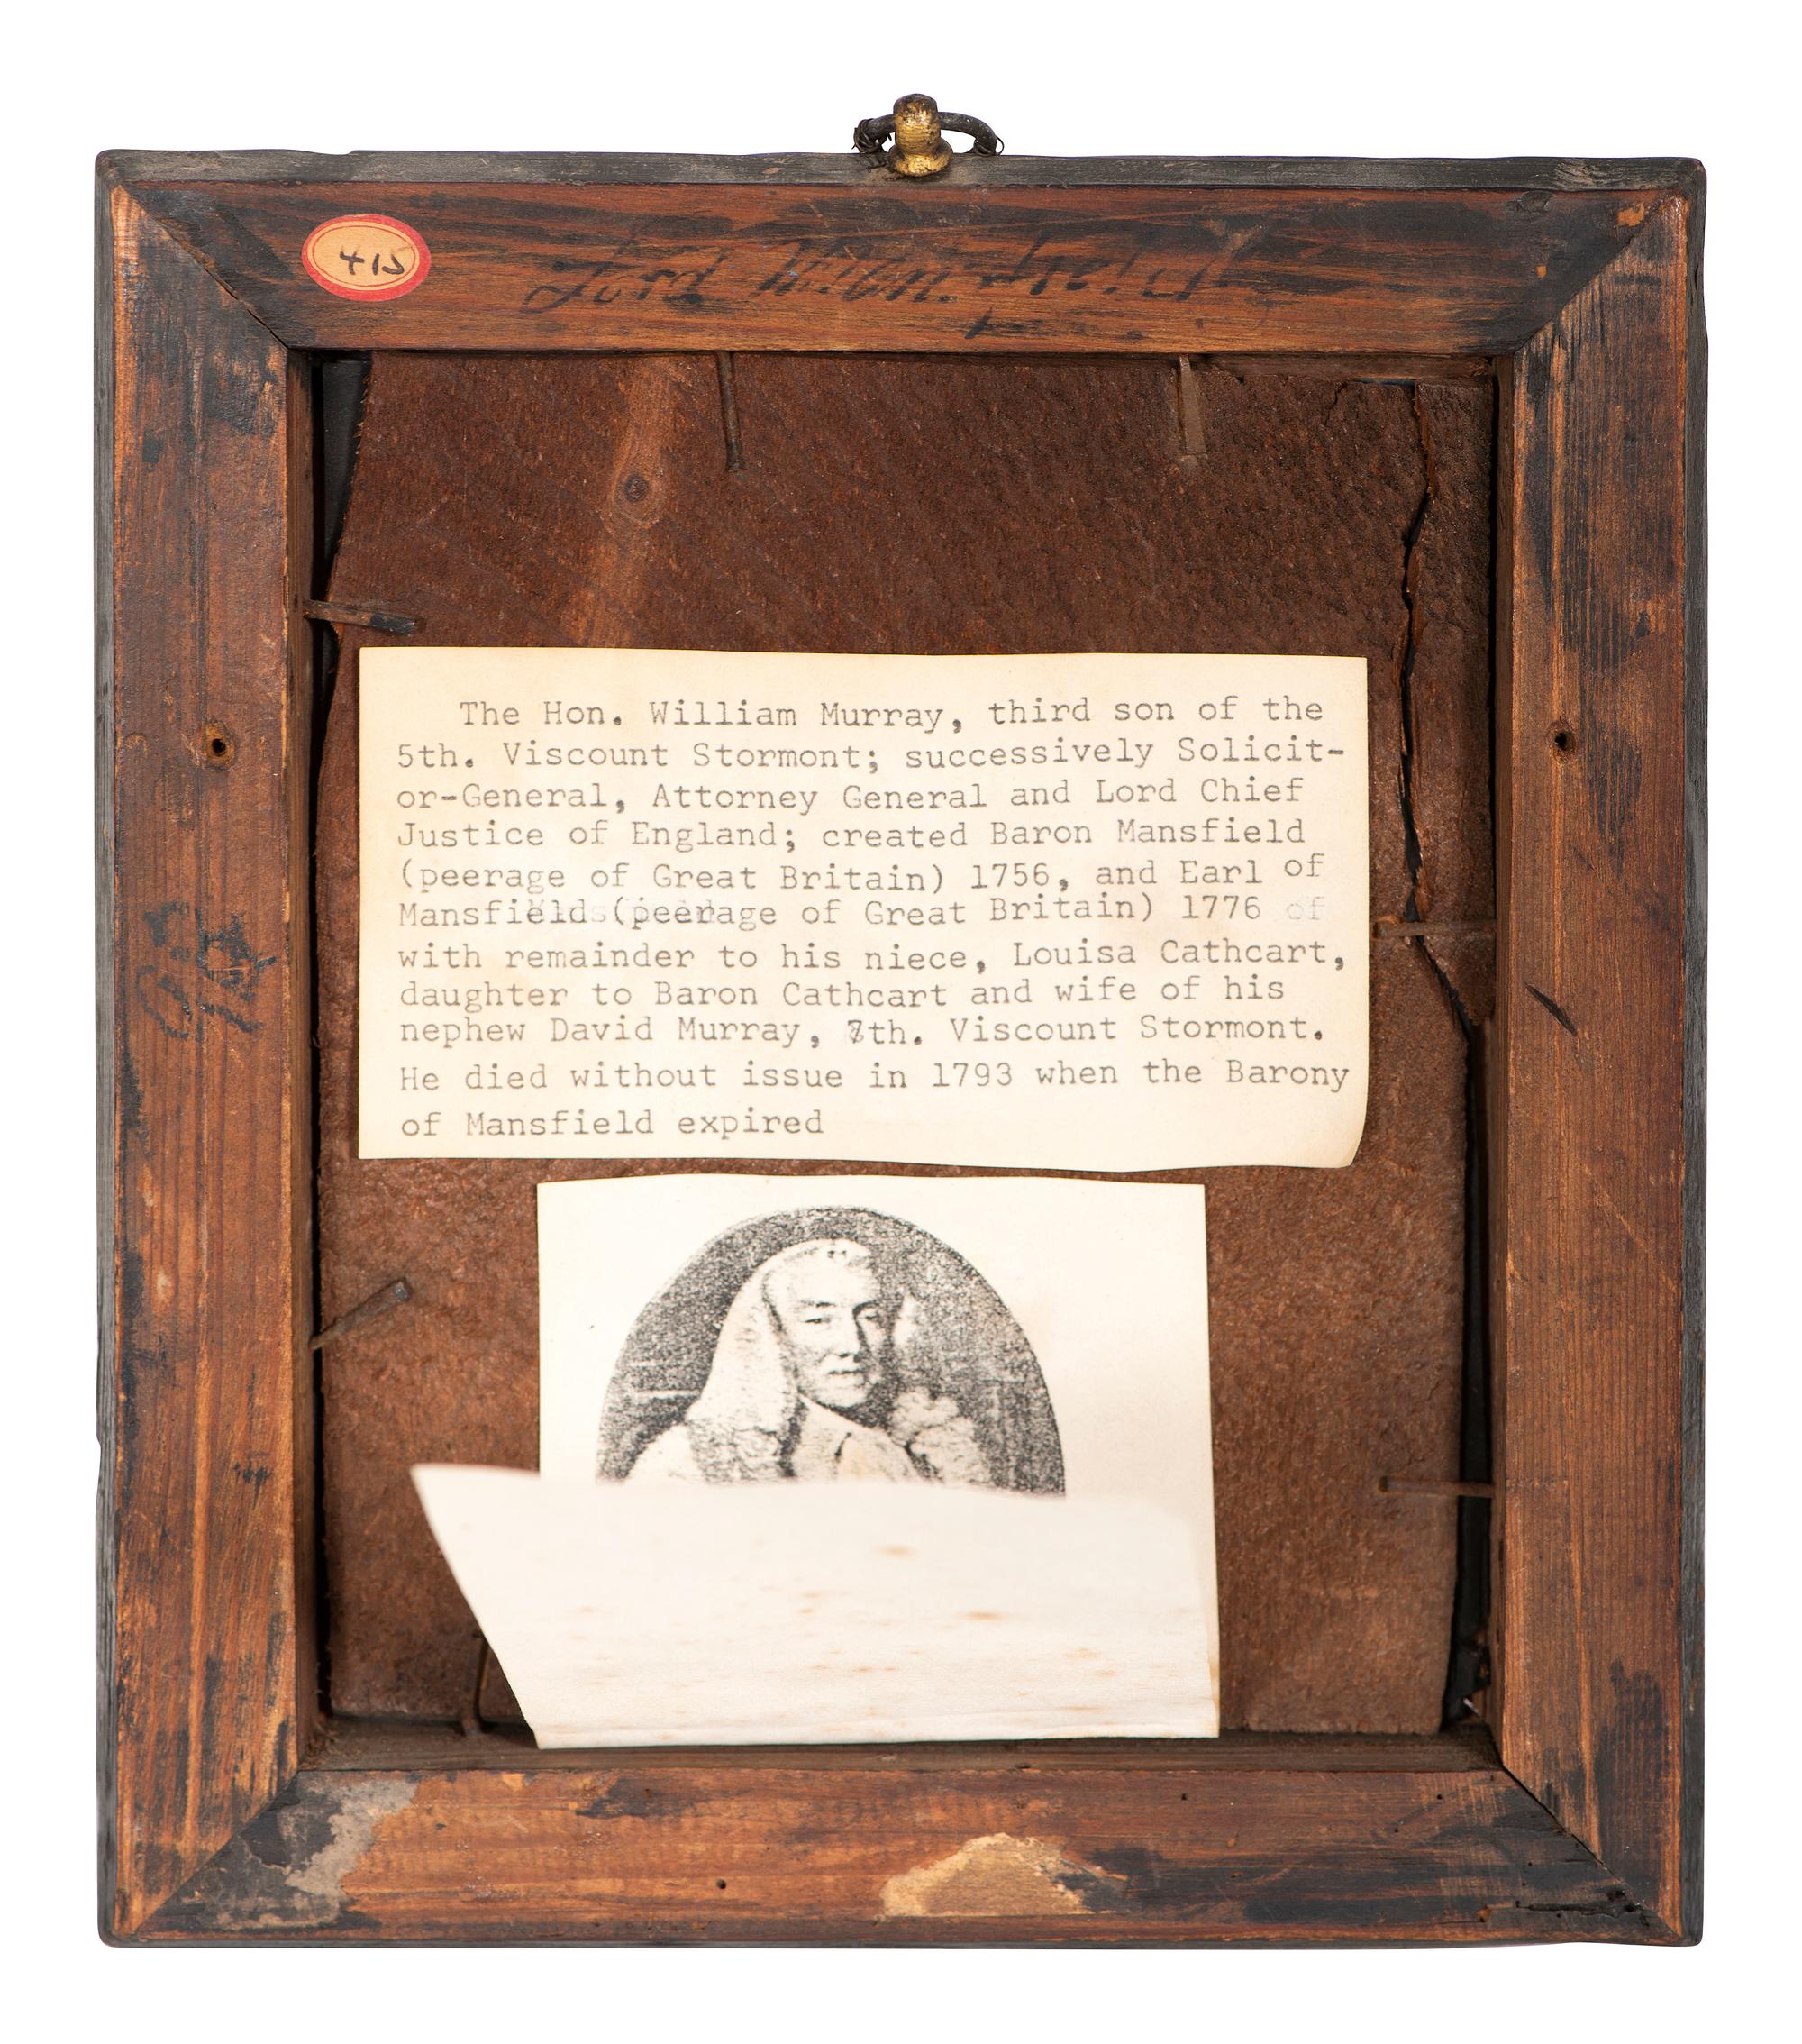 415
Lord
The Hon. William Murray, third son of the
5th. Viscount Stormont; successively Solicit-
or-General, Attorney General and Lord Chief
Justice of England; created Baron Mansfield
(peerage of Great Britain) 1756, and Earl of
Mansfield (peerage of Great Britain) 1776 of
with remainder to his niece, Louisa Cathcart,
daughter to Baron Cathcart and wife of his
nephew David Murray, 7th. Viscount Stormont.
He died without issue in 1793 when the Barony
of Mansfield expired